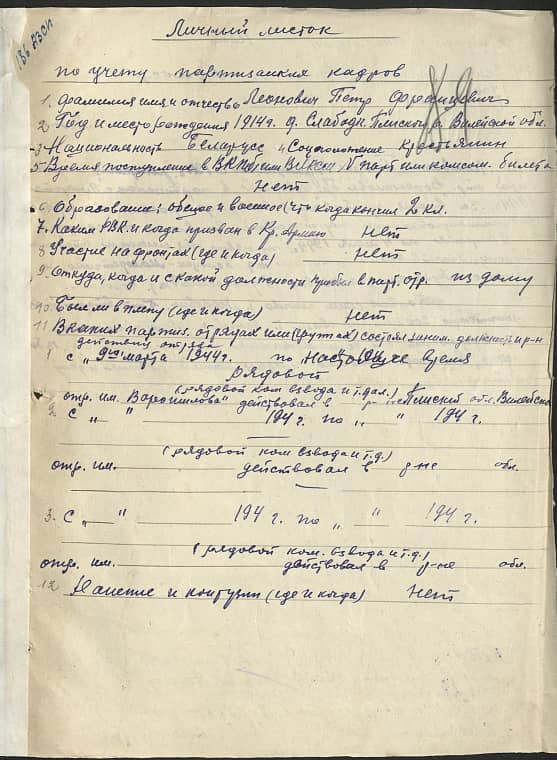 186 АЗСП
Личный листок
по учету партизанских кадров
1. Фамилия имя и отчество Леонович Петр Францевич
2. Год и место рождения 1914 г. д. Слабодк. Плиского р. Вилейской обл.
3. Национальность Беларусс 4 Соцположение Крестьянин
5 Время поступление в ВКПб или ВЛКСМ, № парт или комсом. билета
Нет
6. Образование: общее и военное (что когда кончил 2 кл.
7. Каким РВК и когда призван в Кр. Армию Нет
8 Участие на фронтах (где и когда) Нет
9. Откуда, когда и с какой должности прибыл в парт. отр. из дому
10. Был ли в плену (где и когда) Нет
11 В каких партиз. отрядах или (группах) состоял, заним. должность и р-н
действия отряда
1 с „ марта 1944 г. по Настоящее время
рядовой
(рядовой ком взвода и т.дал.)
отр. им. Ворошилова" действовал в р-не Плиский обл. Вилейско
2 с „ " 194 г. по „ " 194 г.
(рядовой ком взвода и т.д.)
отр. им. действовал в р-не обл.
3. с „ " 194 г. по „ " 194 г.
(рядовой ком. взвода и т.д.)
отр. им. действовал в р-не обл.
12 Ранение и контузии (где и когда) Нет